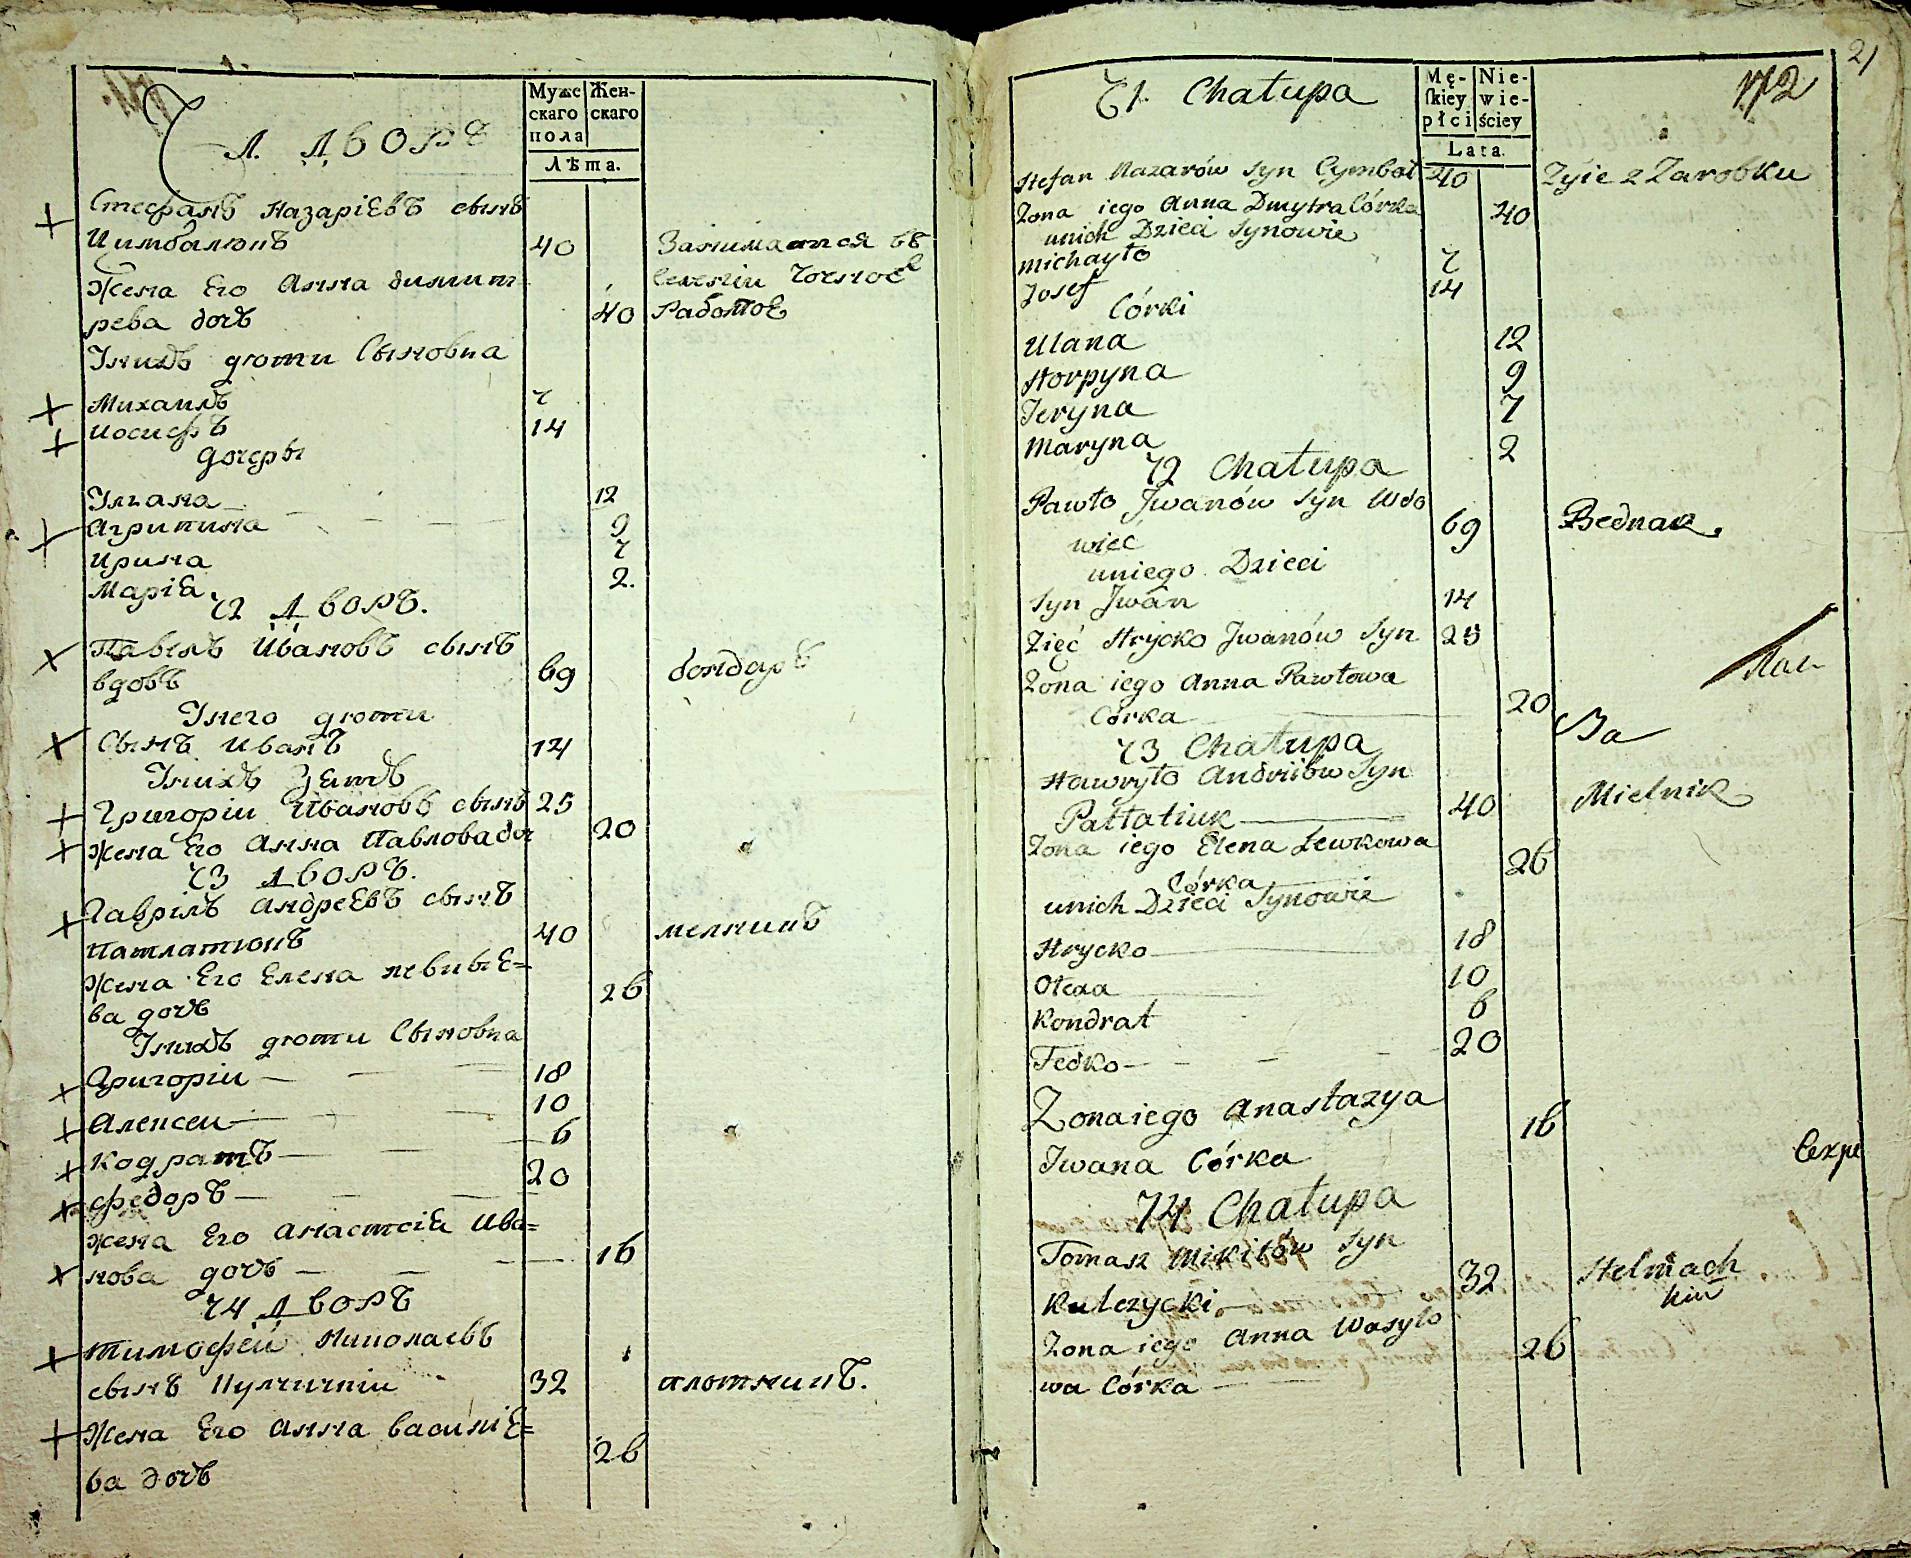 Муже
скаго
пола
Жен-
скаго
Лѣта.
71. Дворъ
Стефанъ Назаріевъ сынъ
Цимбалюкъ 40 Занимаится въ
Жена Его Анна димит
рева дочъ 40 Работое
Унихъ дюти Сыновиа
Михаилъ 7
иосифъ 14
дочеры
Улиана 12
Агрипина 9
ирина 7
Маріа. 2.
72 Дворъ.
Павелъ Ивановъ сынъ
вдовъ 69 бондаръ
Унего дюти
Сынъ иванъ 14
Унихъ Зятъ
Григоріи Ивановъ сынъ 25
жена Его Анна Павлова доч 20
73 Дворъ.
Гаврілъ Андреевъ сынъ
Патлатюкъ 40 мелникъ
Жена Его Елена левкиЕ=
ва дочъ 26
Унихъ дюти Сыновиа
Григоріи 18
Алексеи 10
кодратъ 6
федоръ 20
жена Его Анастсіа Ива=
нова дочъ 16
74 Дворъ
тимофеи Николаевъ
сынъ Кулчичкіи 32 плотникъ.
Жена Его Анна василіЕ=
ва дочъ 26
21
172
71. Chałupa
Mę-
ſkiey
płci
Nie-
wie-
ściey
Lata.
Stefan Nazarów Syn Cymbał 40 Zyie z Zarobku
Zona iego Anna Dmytra Córka 40
unich Dzieci Synowie
Michayło 7
Josef 14
Córki
Ulana 12
Horpyna 9
Jeryna 7
Maryna 2
72 Chałupa
Pawło Jwanów Syn Wdo
wiec 69 Bednarz
uniego Dzieci
Syn Jwan 14
Zięć Hrycko Jwanów Syn 25
Zona iego Anna Pawłowa
Córka 20
73 Chałupa
Hawryło Andriiów Syn
Patłatiuk 40 Mielnik
Zona iego Elena Lewkowa
Córka 26
unich Dzieci Synowie
Hrycko 18
Olexa 10
Kondrat 6
Fedko 20
Zona iego Anastazya
Jwana Córka 16
74 Chałupa
Tomasz Mikitów Syn
Kulczycki 32 Stelmach
Zona iego Anna Wasyło
wa Córka 26